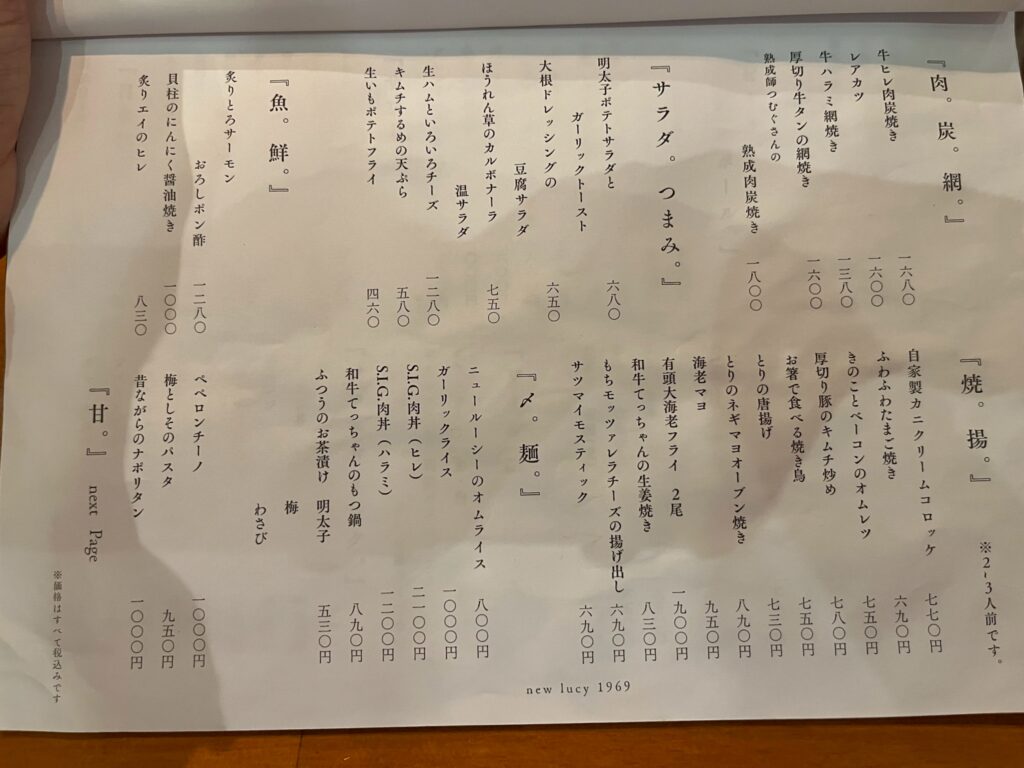 『肉。炭。網。』
牛ヒレ肉炭焼き 一六八〇
レアカツ 一六〇〇
牛ハラミ網焼き 一三八〇
厚切り牛タンの網焼き 一六〇〇
熟成師つむぐさんの
熟成肉炭焼き 一八〇〇
『サラダ。つまみ。』
明太子ポテトサラダと
ガーリックトースト 六八〇
大根ドレッシングの
豆腐サラダ 六五〇
ほうれん草のカルボナーラ
温サラダ 七五〇
生ハムといろいろチーズ 一二八〇
キムチするめの天ぷら 五八〇
生いもポテトフライ 四六〇
『魚。鮮。』
炙りとろサーモン
おろしポン酢 一二八〇
貝柱のにんにく醤油焼き 一〇〇〇
炙りエイのヒレ 八三〇
『焼。揚。』
※2~3人前です。
自家製カニクリームコロッケ 七七〇円
ふわふわたまご焼き 六九〇円
きのことベーコンのオムレツ 七五〇円
厚切り豚のキムチ炒め 七八〇円
お箸で食べる焼き鳥 七五〇円
とりの唐揚げ 七三〇円
とりのネギマヨオーブン焼き 八九〇円
海老マヨ 九五〇円
有頭大海老フライ 2尾 一九〇〇円
和牛てっちゃんの生姜焼き 八三〇円
もちモッツァレラチーズの揚げ出し 六九〇円
サツマイモスティック 六九〇円
『〆。麺。』
ニュールーシーのオムライス 八〇〇円
ガーリックライス 一〇〇〇円
S.I.G.肉丼(ヒレ) 二一〇〇円
S.I.G.肉丼(ハラミ) 一二〇〇円
和牛てっちゃんのもつ鍋 八九〇円
ふつうのお茶漬け 明太子 五三〇円
梅
わさび
ペペロンチーノ 一〇〇〇円
梅としそのパスタ 九五〇円
昔ながらのナポリタン 一〇〇〇円
『甘。』 next Page
※価格はすべて税込みです
new lucy 1969